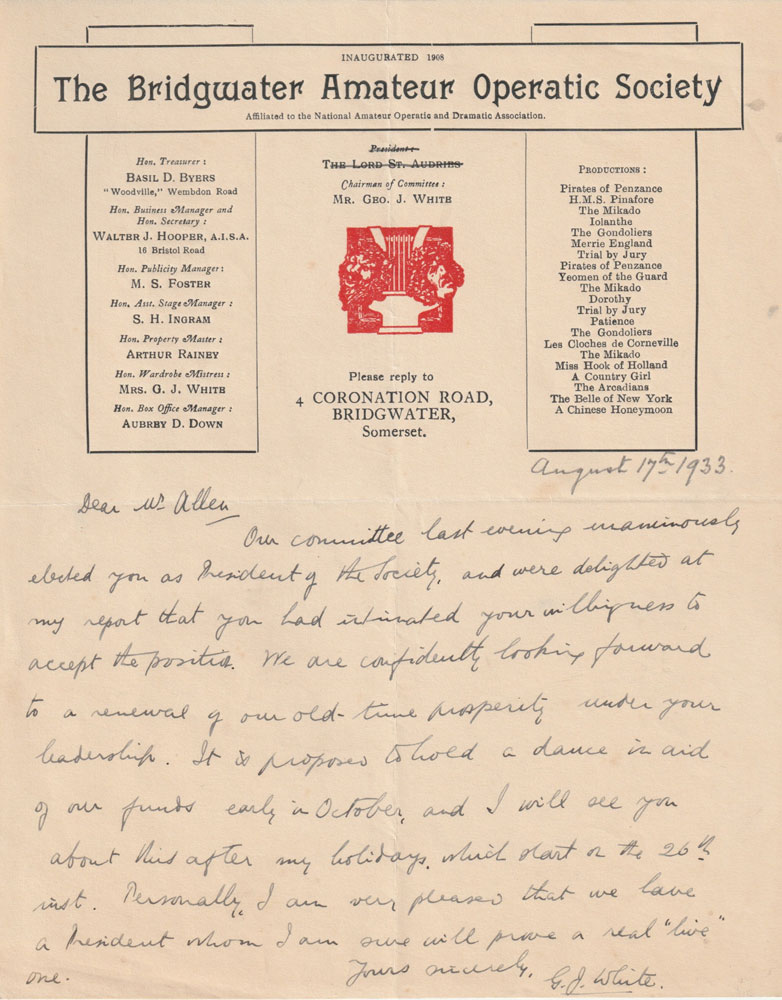 INAUGURATED 1908
The Bridgwater Amateur Operatic Society
Affiliated to the National Amateur Operatic and Dramatic Association.
Hon. Treasurer :
BASIL D. BYERS
"Woodville," Wembdon Road
Hon. Business Manager and
Hon. Secretary :
WALTER J. HOOPER, A.I.S.A.
16 Bristol Road
Hon. Publicity Manager :
M. S. FOSTER
Hon. Asst. Stage Manager :
S. H. INGRAM
Hon. Property Master :
ARTHUR RAINEY
Hon. Wardrobe Mistress :
MRS. G. J. WHITE
Hon. Box Office Manager :
AUBREY D. DOWN
President :
THE LORD ST. AUDRIES
Chairman of Committee :
MR. GEO. J. WHITE
Please reply to
4 CORONATION ROAD,
BRIDGWATER,
Somerset.
PRODUCTIONS :
Pirates of Penzance
H.M.S. Pinafore
The Mikado
Iolanthe
The Gondoliers
Merrie England
Trial by Jury
Pirates of Penzance
Yeomen of the Guard
The Mikado
Dorothy
Trial by Jury
Patience
The Gondoliers
Les Cloches de Corneville
The Mikado
Miss Hook of Holland
A Country Girl
The Arcadians
The Belle of New York
A Chinese Honeymoon
August 17th 1933.
Dear Mr Allen
Our committee last evening unanimously
elected you as President of the Society, and were delighted at
my report that you had intimated your willingness to
accept the position. We are confidently looking forward
to a renewal of our old-time prosperity under your
leadership. It is proposed to hold a dance in aid
of our funds early in October, and I will see you
about this after my holidays, which start on the 26th
inst. Personally, I am very pleased that we have
a President whom I am sure will prove a real "live"
one.
Yours sincerely, G. J. White.